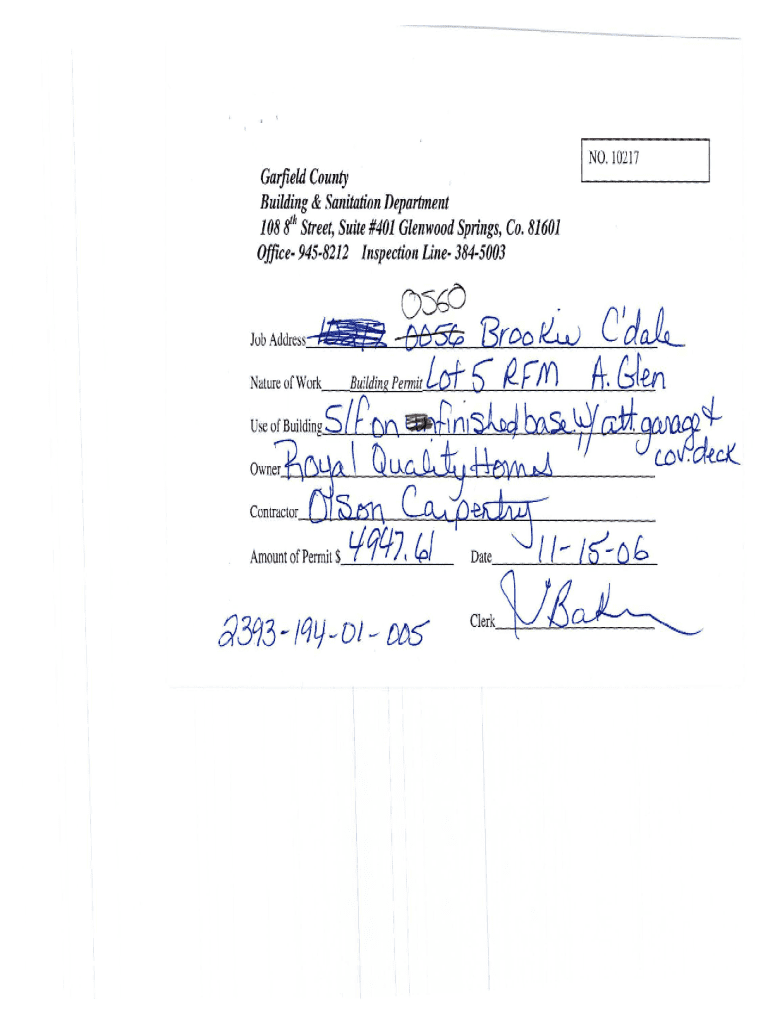 NO. 10217
Garfield County
Building & Sanitation Department
108 8th Street, Suite #401 Glenwood Springs, Co. 81601
Office- 945-8212 Inspection Line- 384-5003
0560
Job Address 0056 Brookie C'dale
Nature of Work Building Permit Lot 5 RFM A. Glen
Use of Building S/F on finished base w/ att. garage &
cov. deck
Owner Royal Quality Homes
Contractor Olson Carpentry
Amount of Permit $ 4947.61 Date 11-15-06
Clerk
2393-194-01-005